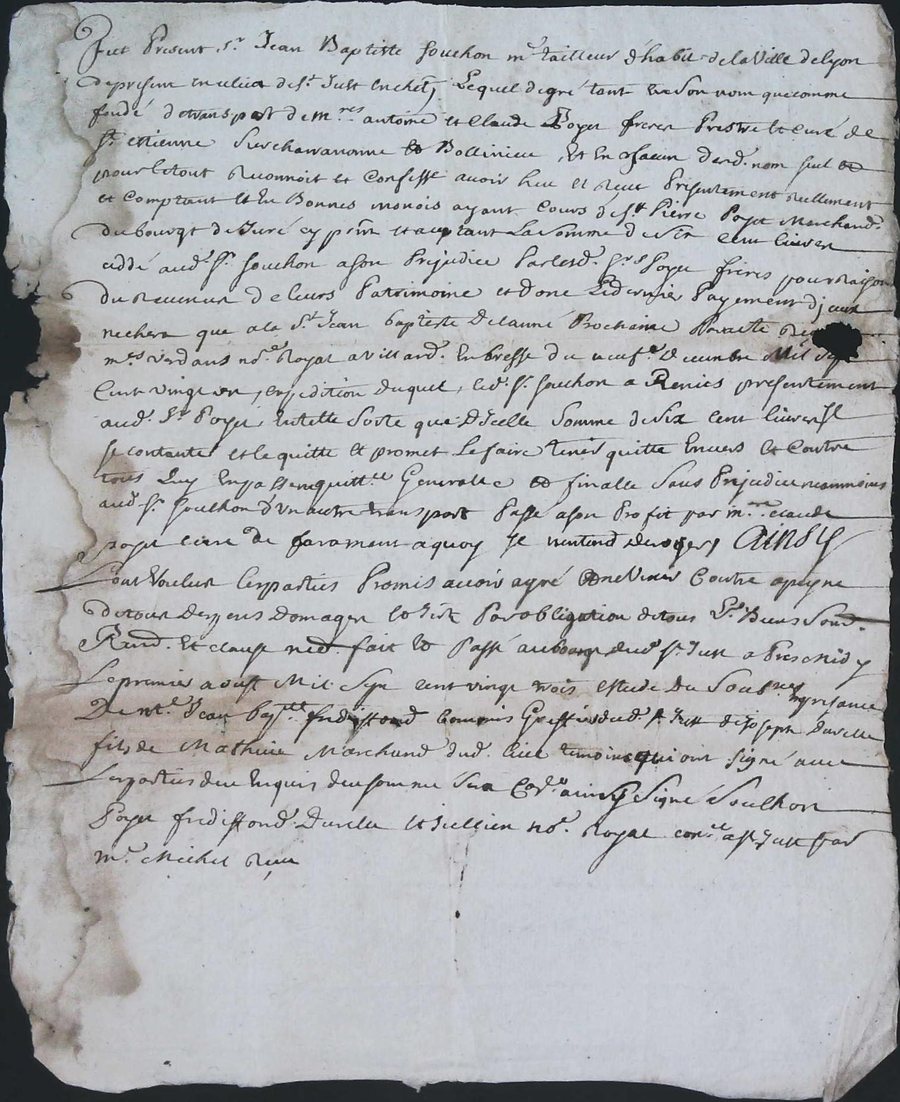 Fut Present Sr. Jean Baptiste Souchon me. tailleur d'habit de la Ville de lyon
de present en ce lieu de St. Just en chet, Lequel de gré tant en son nom que comme
fondé de transport de mres. antoine et Claude Poyet freres Prestre et curé de
St. etienne sur et Bollinieu, et en chacun desd. nom seul
pour le tout Reconnoit et Confesse avoir heu et Receu Presentement reellement
et Comptant et En Bonnes monois ayant Cours de Sr. Pierre Poyet Marchand
du bourgt de Juré cy present et acceptant La somme de six cent livres
cédé aud. Sr. Souchon a son Prejudice Par lesd. Srs. Poyet freres pour raison
du Revenu de leurs Patrimoine et donc Le dernier Payement
nechera que a la St. Jean baptiste de lanné Prochaine
me. verdans nore. Royal a villard. En bresse du neufe. Decembre Mil Sept
Cent vingt un, expedition duquel, led. Sr. Souchon a Remis presentement
aud. Sr. Poyet, En telle sorte que d'Icelle Somme de Six cent livres Il
se contante et le quitte et promet le faire tenir quitte Envers et Contre
tous Luy En passe quittce. Generalle et finalle Sans Prejudice neanmoins
aud. Sr. Souchon d'un autre transport Passé a son Profit par mre. claude
poyet curé de faramant a quoy Il n'entend deroger, AINSY
L'ont voulu les parties Promis avoir agré Contre a peyne
de tous depens domages et Par obligation de tous Ls. Biens Soud.
Rend. et clause neds. fait et Passé au bourg dud. St. Just a Pres Midy
Le premier aoust Mil Sept cent vingt trois estude du Soubne. En presance
De me. Jean bapte. fredifond Commis Greffier dud. St. Just de Joseph Durelle
fils de Mathieu Marchand dud. lieu temoins qui ont signé avec
Les parties de ce Enquis de somme Sur Cede. ainsy Signé Souchon
Poyet fredifond. Durelle et nore. Royal conle. a St. Just par
mr. Michel